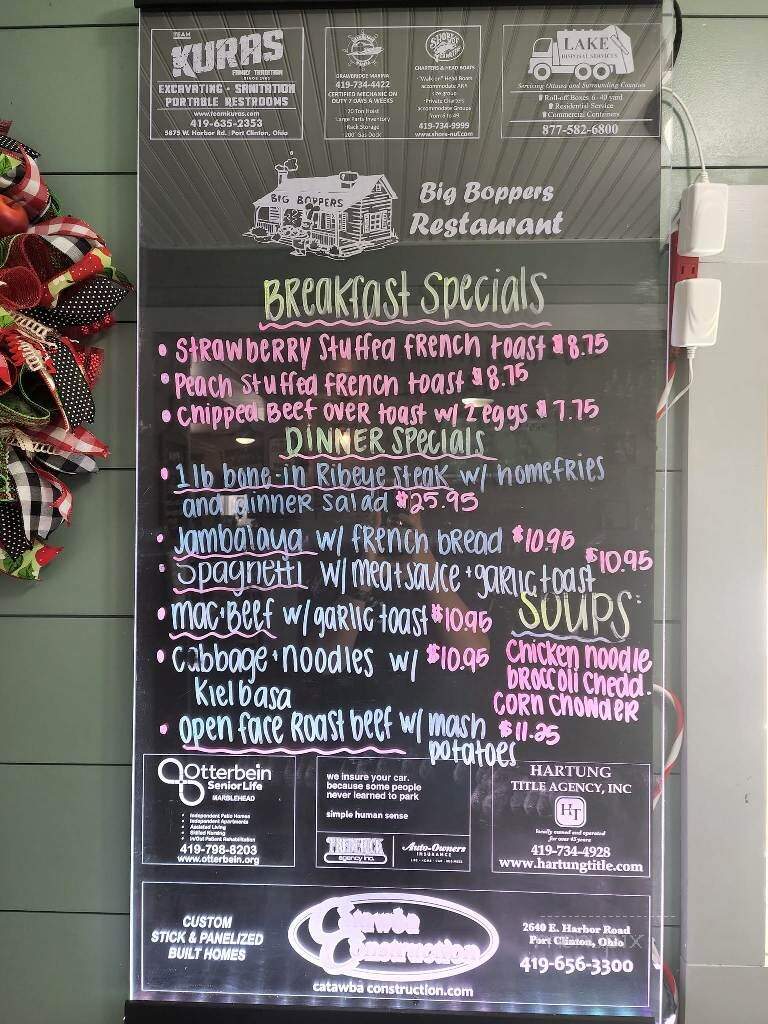 TEAM
KURAS
FAMILY TRADITION
EXCAVATING • SANITATION
PORTABLE RESTROOMS
www.teamkuras.com
419-635-2353
5875 W. Harbor Rd. Port Clinton, Ohio
DRAWBRIDGE MARINA
419-734-4422
CERTIFIED MECHANIC ON
DUTY 7 DAYS A WEEKS
70 Ton Hoist
Large Parts Inventory
Rack Storage
200' Gas Dock
CHARTERS & HEAD BOATS
"Walk-on" Head Boats
accommodate ANY
size group
Private Charters
accommodate Groups
from 6 to 49
419-734-9999
www.shore-nuf.com
LAKE
DISPOSAL SERVICES
Servicing Ottawa and Surrounding Counties
Roll-off Boxes 6-40 yard
Residential Service
Commercial Containers
877-582-6800
BIG BOPPERS
Big Boppers
Restaurant
Breakfast Specials
• Strawberry Stuffed French Toast $8.75
• Peach Stuffed French Toast $8.75
• Chipped Beef over toast w/ 2 eggs $7.75
Dinner Specials
• 1 lb bone-in Ribeye steak w/ homefries
and dinner salad $25.95
• Jambalaya w/ french bread $10.95
• Spaghetti w/ meat sauce + garlic toast $10.95
• Mac+Beef w/ garlic toast $10.95
• Cabbage + noodles w/ $10.95
Kielbasa
• Open face Roast beef w/ mash $11.25
potatoes
SOUPS:
Chicken noodle
broccoli chedd.
corn chowder
Otterbein
SeniorLife
MARBLEHEAD
• Independent Patio Homes
• Independent Apartments
• Assisted Living
• Skilled Nursing
• In/Out Patient Rehabilitation
419-798-8203
www.otterbein.org
we insure your car.
because some people
never learned to park
simple human sense
FREDERICK
agency inc.
Auto-Owners
INSURANCE
LIFE • HOME • CAR • BUSINESS
HARTUNG
TITLE AGENCY, INC
HT
locally owned and operated
for over 45 years
419-734-4928
www.hartungtitle.com
CUSTOM
STICK & PANELIZED
BUILT HOMES
Catawba
Construction
catawba construction.com
2640 E. Harbor Road
Port Clinton, Ohio
419-656-3300